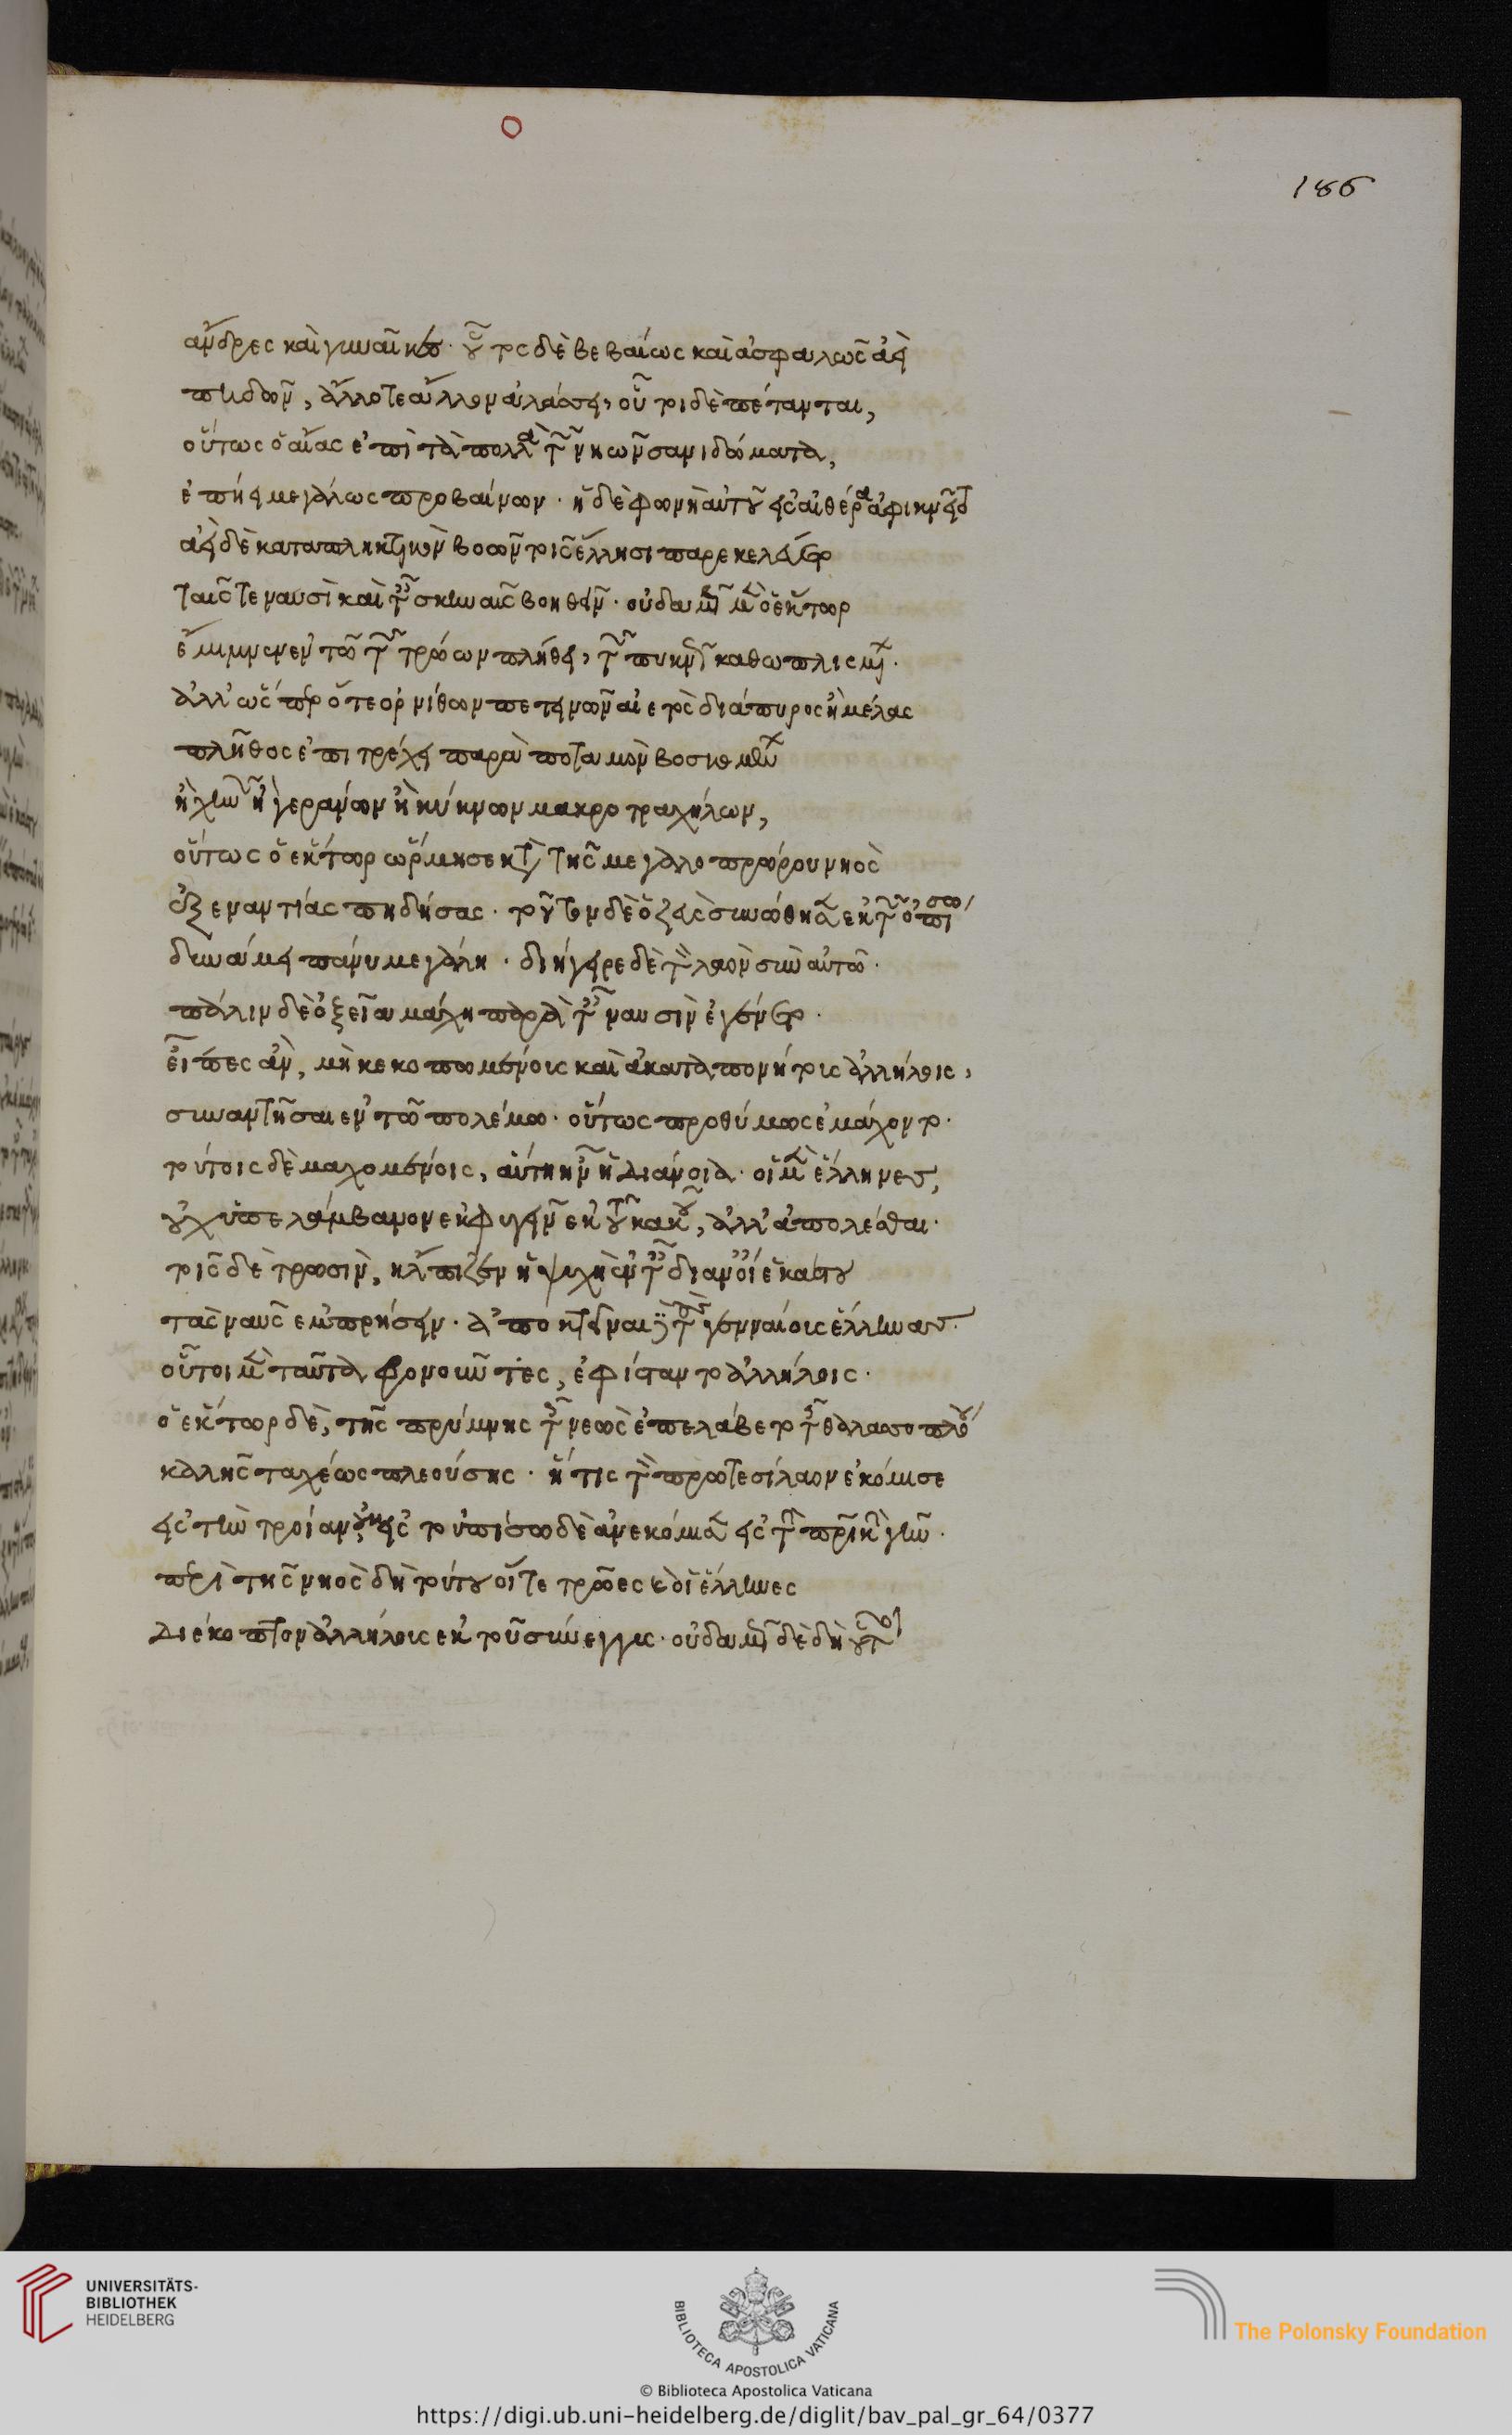 186
ἄνδρες καὶ γυναῖκες· οὗτος δὲ βεβαίως καὶ ἀσφαλῶς ἀεὶ
πηδῶν, ἄλλοτε ἄλλον ἀλάσσει, οὗτοι δὲ πέτανται,
οὕτως ὁ αἴας ἐπὶ τὰ πολλὰ τῶν νηῶν σανιδώματα,
ἐπήει μεγάλως προβαίνων· ἡ δὲ φωνὴ αὐτοῦ εἰς αἰθέρα ἀφικνεῖτο
ἀεὶ δὲ καταπληκτικὸν βοῶν τοῖς ἕλλησι παρεκελεύετο
ταῖς τε ναυσὶ καὶ ταῖς σκηναῖς βοηθεῖν· οὐδαμῶς μὲν ὁ ἕκτωρ
ἔμεινεν ἐν τῶ τῶν τρώων πλήθει, τῶν πυκνῶς καθωπλισμένων.
ἀλλ' ὥσπερ ὅτε ὀρνίθων πετεινῶν αἰετὸς διάπυρος ἢ μέλας
πλῆθος ἐπιτρέχει παρὰ ποταμὸν βοσκομένων
ἢ χηνῶν ἢ γεράνων ἢ κύκνων μακροτραχήλων,
οὕτως ὁ ἕκτωρ ὥρμησε κατὰ τῆς μεγαλοπρώρου νηὸς
ἐξεναντίας πηδήσας· τοῦτον δὲ ὁ ζεὺς συνώθησεν ἐκ τῶν ὀπίσω
δυνάμει πάνυ μεγάλη· διήγειρε δὲ τὸν λαὸν σὺν αὐτῶ.
πάλιν δὲ ὀξεῖα μάχη παρὰ ταῖς ναυσὶν ἐγένετο.
εἶπες ἂν, μὴ κεκοπωμένοις καὶ ἀκαταπονήτοις ἀλλήλοις,
συναντῆσαι ἐν τῶ πολέμω· οὕτως προθύμως ἐμάχοντο.
τούτοις δὲ μαχομένοις, αὕτη ἦν ἡ διάνοια· οἱ μὲν ἕλληνες,
οὐχ ὑπελάμβανον ἐκφυγεῖν ἐκ τοῦ κακοῦ, ἀλλ' ἀπολέσθαι.
τοῖς δὲ τρωσὶν, ἤλπιζεν ἡ ψυχὴ ἐν ταῖς διανοίαις ἑκάστου
τὰς ναῦς ἐμπρήσειν· ἀποκτεῖναι δὲ τοὺς γενναίους ἕλληνας.
οὗτοι μὲν ταῦτα φρονοῦντες, ἐφίσταντο ἀλλήλοις.
ὁ ἕκτωρ δὲ, τῆς πρύμνης τῆς νεὼς ἐπελάβετο τῆς θαλασσοπλόου
καλῆς ταχέως πλεούσης· ἥτις τὸν πρωτεσίλαον ἐκόμισε
εἰς τὴν τροίαν, οὐκ εἰς τοὐπίσω δὲ ἀνεκόμισεν εἰς τὴν πατρικὴν γῆν.
περὶ τῆς νηὸς δὴ τούτου οἵ τε τρῶες καὶ οἱ ἕλληνες
διέκοπτον ἀλλήλοις ἐκ τοῦ σύνεγγυς· οὐδαμῶς δὲ δὴ οὗτοι
UNIVERSITÄTS-
BIBLIOTHEK
HEIDELBERG
BIBLIOTECA APOSTOLICA VATICANA
The Polonsky Foundation
© Biblioteca Apostolica Vaticana
https://digi.ub.uni-heidelberg.de/diglit/bav_pal_gr_64/0377